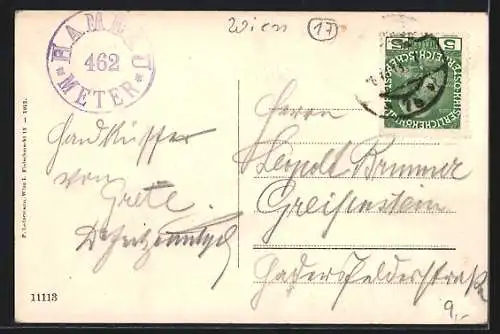 Wien
17
HAMEAU
462
* METER *
5 5
KAISERLICHEKÖNIGL
ÖSTERREICHISCHE POST
Handküsse
von
Grete.
Herrn
Leopold Brunner
Greifenstein
Hadersfelderstraße
9,-
P. Ledermann, Wien I. Fleischmarkt 12 – 1912.
11113